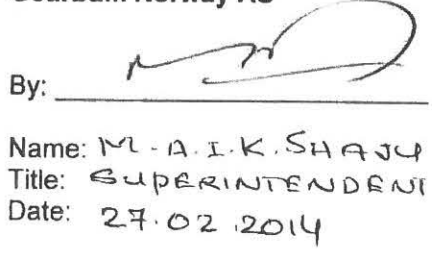 Norway AS
By:
Name: M.A.I.K. SHAJU
Title: SUPERINTENDENT
Date: 27.02.2014